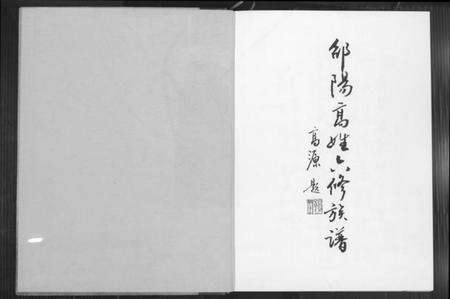 邵陽高姓六修族譜
高源 題